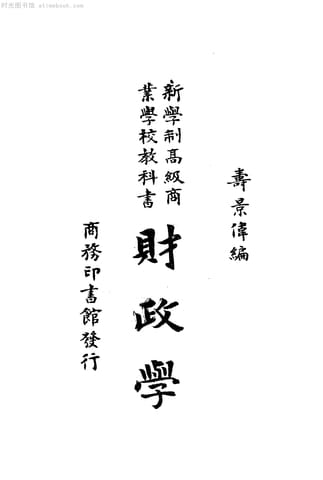 时光图书馆 alimebook.com
壽景偉編
新學制高級商
業學校教科書
財政學
商務印書館發行